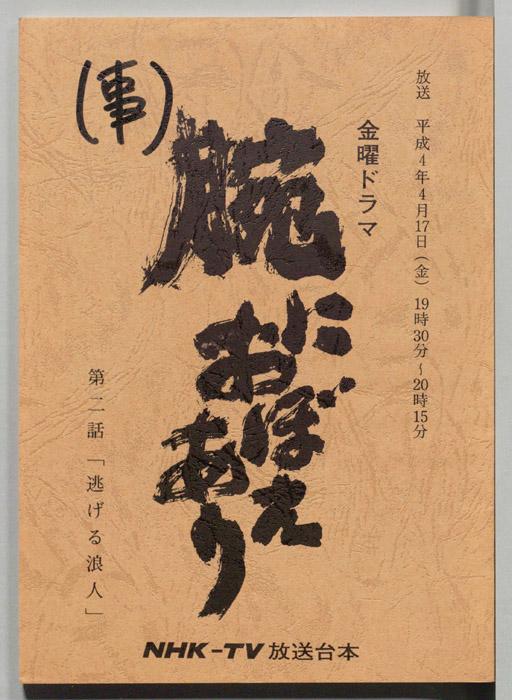 放送 平成4年4月17日（金） 19時30分～20時15分
金曜ドラマ
腕
におぼえ
あり
第二話「逃げる浪人」
（事）
NHK-TV 放送台本